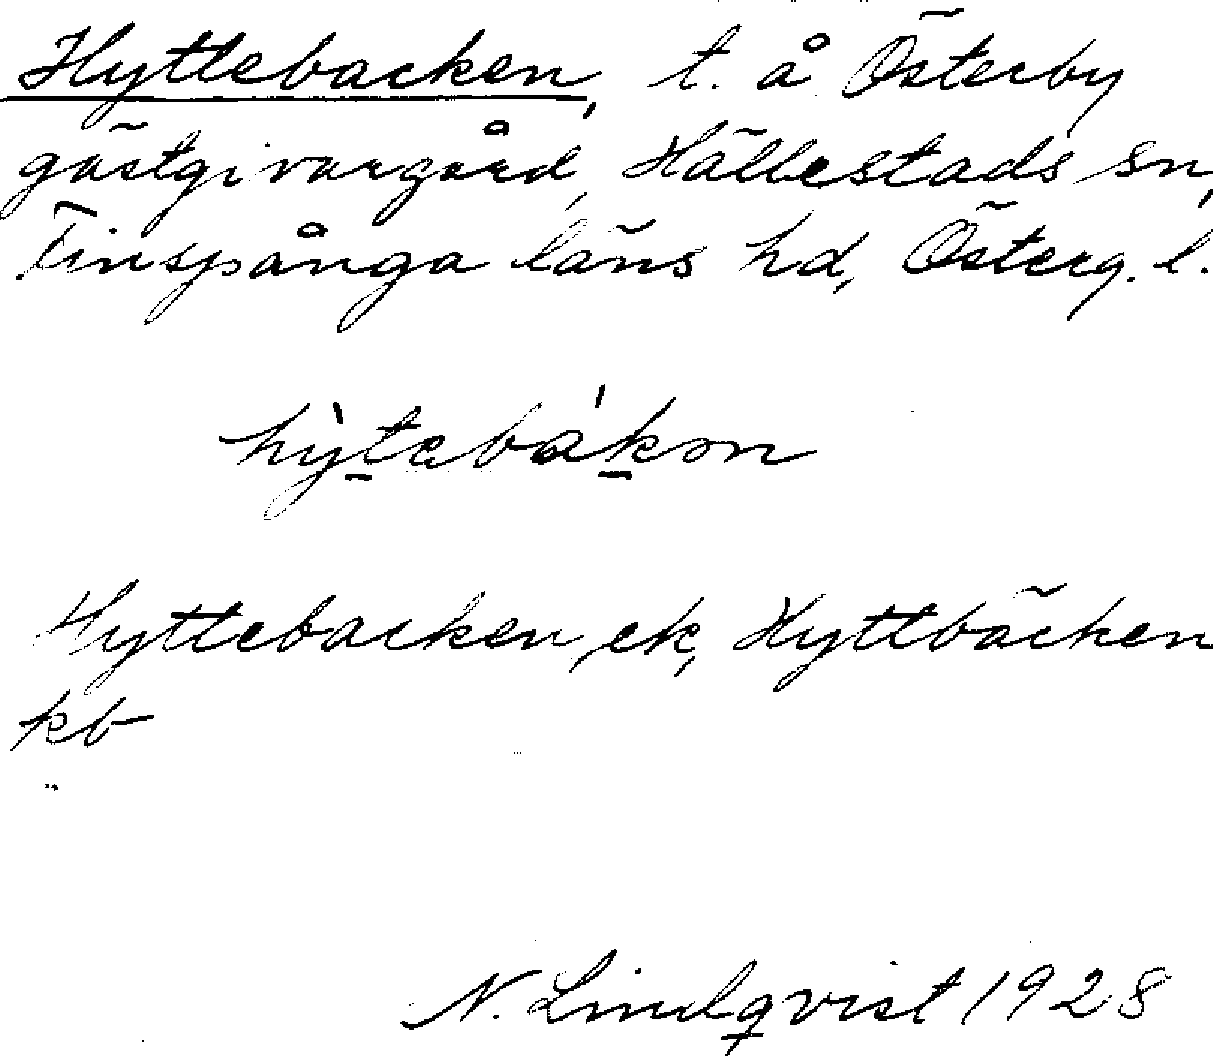 Hyttebacken, t. å Österby
gästgivargård, Hällestads sn,
Finspånga läns hd, Österg. l.
hỳtebákən
Hyttebacken ek, Hyttbäcken
kb
N. Lindqvist 1928